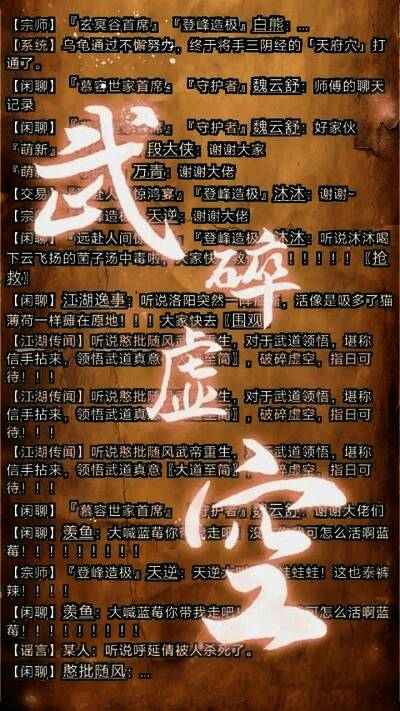 【宗师】『玄冥谷首席』『登峰造极』白熊：...
【系统】乌龟通过不懈努力，终于将手三阴经的「天府穴」打
通了。
【闲聊】『慕容世家首席』『守护者』魏云舒：师傅的聊天
记录
【闲聊】『慕容世家首席』『守护者』魏云舒：好家伙
『萌新』段大侠：谢谢大家
万青：谢谢大佬
【交易】惊鸿宴』『登峰造极』沐沐：谢谢~
造极』天逆：谢谢大佬
【闲聊】『远赴人间惊『登峰造极』沐沐：听说沐沐喝
下云飞扬的菌子汤中毒啦，大家快！！！！！！〖抢
救〗
【闲聊】江湖逸事：听说洛阳突然一阵，活像是吸多了猫
薄荷一样瘫在原地！！！大家快去〖围观〗
【江湖传闻】听说憨批随风武帝重生，对于武道领悟，堪称
信手拈来，领悟武道真意〖大道至简〗，破碎虚空，指日可
待！！！
【江湖传闻】听说憨批随风武帝重生，对于武道领悟，堪称
信手拈来，领悟武道真意〖大道至简〗，破碎虚空，指日可
待！！！
【江湖传闻】听说憨批随风武帝重生，对于武道领悟，堪称
信手拈来，领悟武道真意〖大道至简〗，破碎虚空，指日可
待！！！
【闲聊】『慕容世家首席』『守护者』魏云舒：谢谢大佬们
【闲聊】羡鱼：大喊蓝莓你带我走吧！没我可怎么活啊蓝
莓！！！！！！！！！
【宗师】『登峰造极』天逆：天逆大蛙蛙蛙！这也泰裤
辣！！！！
【闲聊】羡鱼：大喊蓝莓你带我走吧！可怎么活啊蓝
莓！！！！！！！！！
【谣言】某人：听说呼延倩被人杀死了。
【闲聊】憨批随风：...
武
碎
虚
空